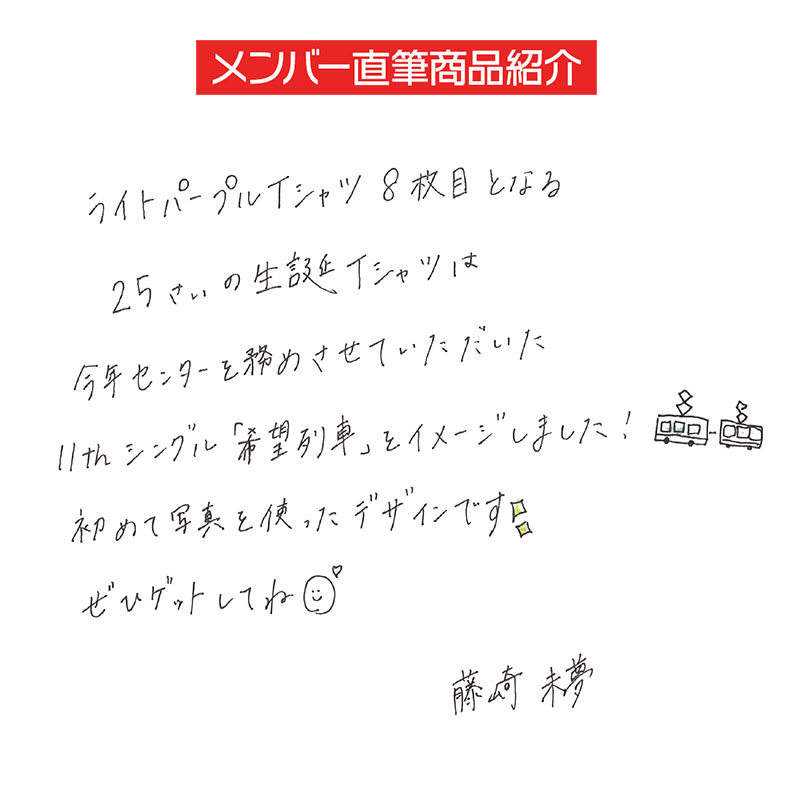 メンバー直筆商品紹介
ライトパープルTシャツ 8枚目となる
25さいの生誕Tシャツは
今年センターを務めさせていただいた
11thシングル「希望列車」をイメージしました！
初めて写真を使ったデザインです
ぜひゲットしてね
藤崎 未夢